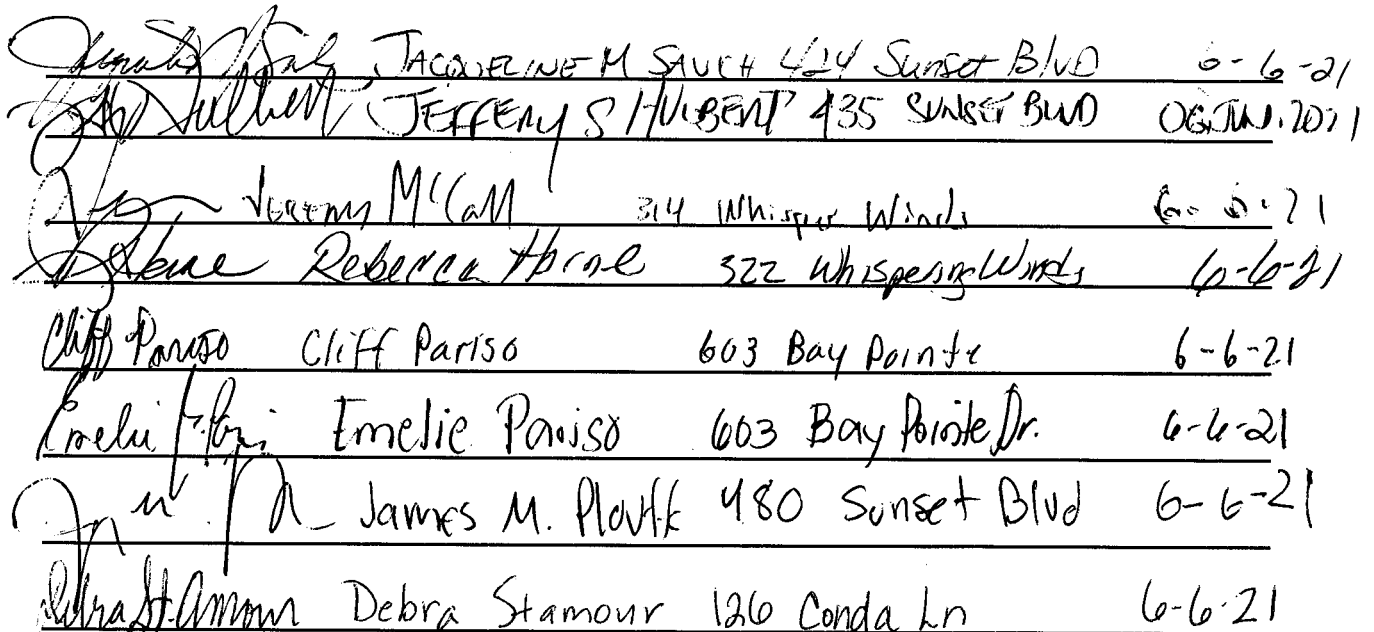 JACQUELINE M SAUCH 424 Sunset BLVD 6-6-21
JEFFERY S HULBERT 435 SUNSET BLVD 06.JUN.2021
Jeremy McCall 314 Whisper Winds 6-6-21
Rebecca Horne 322 Whispering Winds 6-6-21
Cliff Pariso Cliff Pariso 603 Bay Pointe 6-6-21
Emelie Pariso 603 Bay Pointe Dr. 6-6-21
James M. 480 Sunset Blvd 6-6-21
Debra St.Amour Debra Stamour 126 Conda Ln 6-6-21